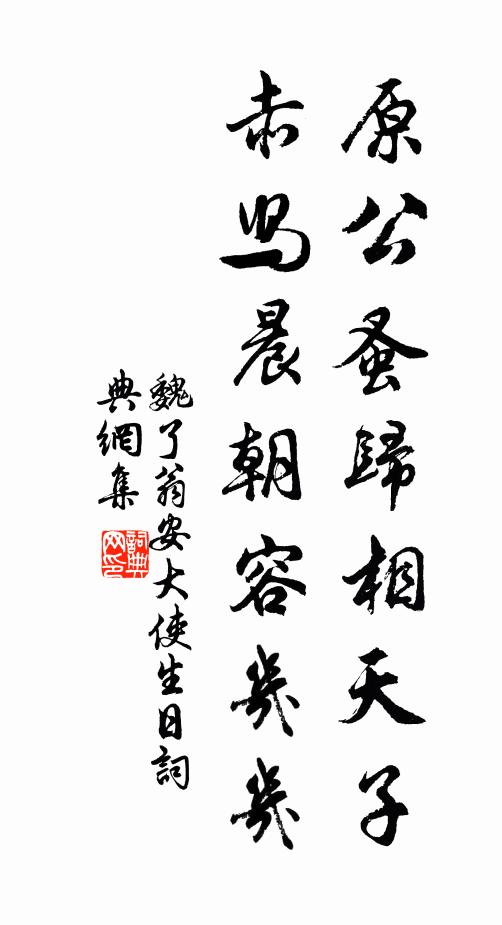 原公蚤歸相天子
赤舄晨朝容幾幾
魏了翁安大使生日詞
典網集
詞典网印